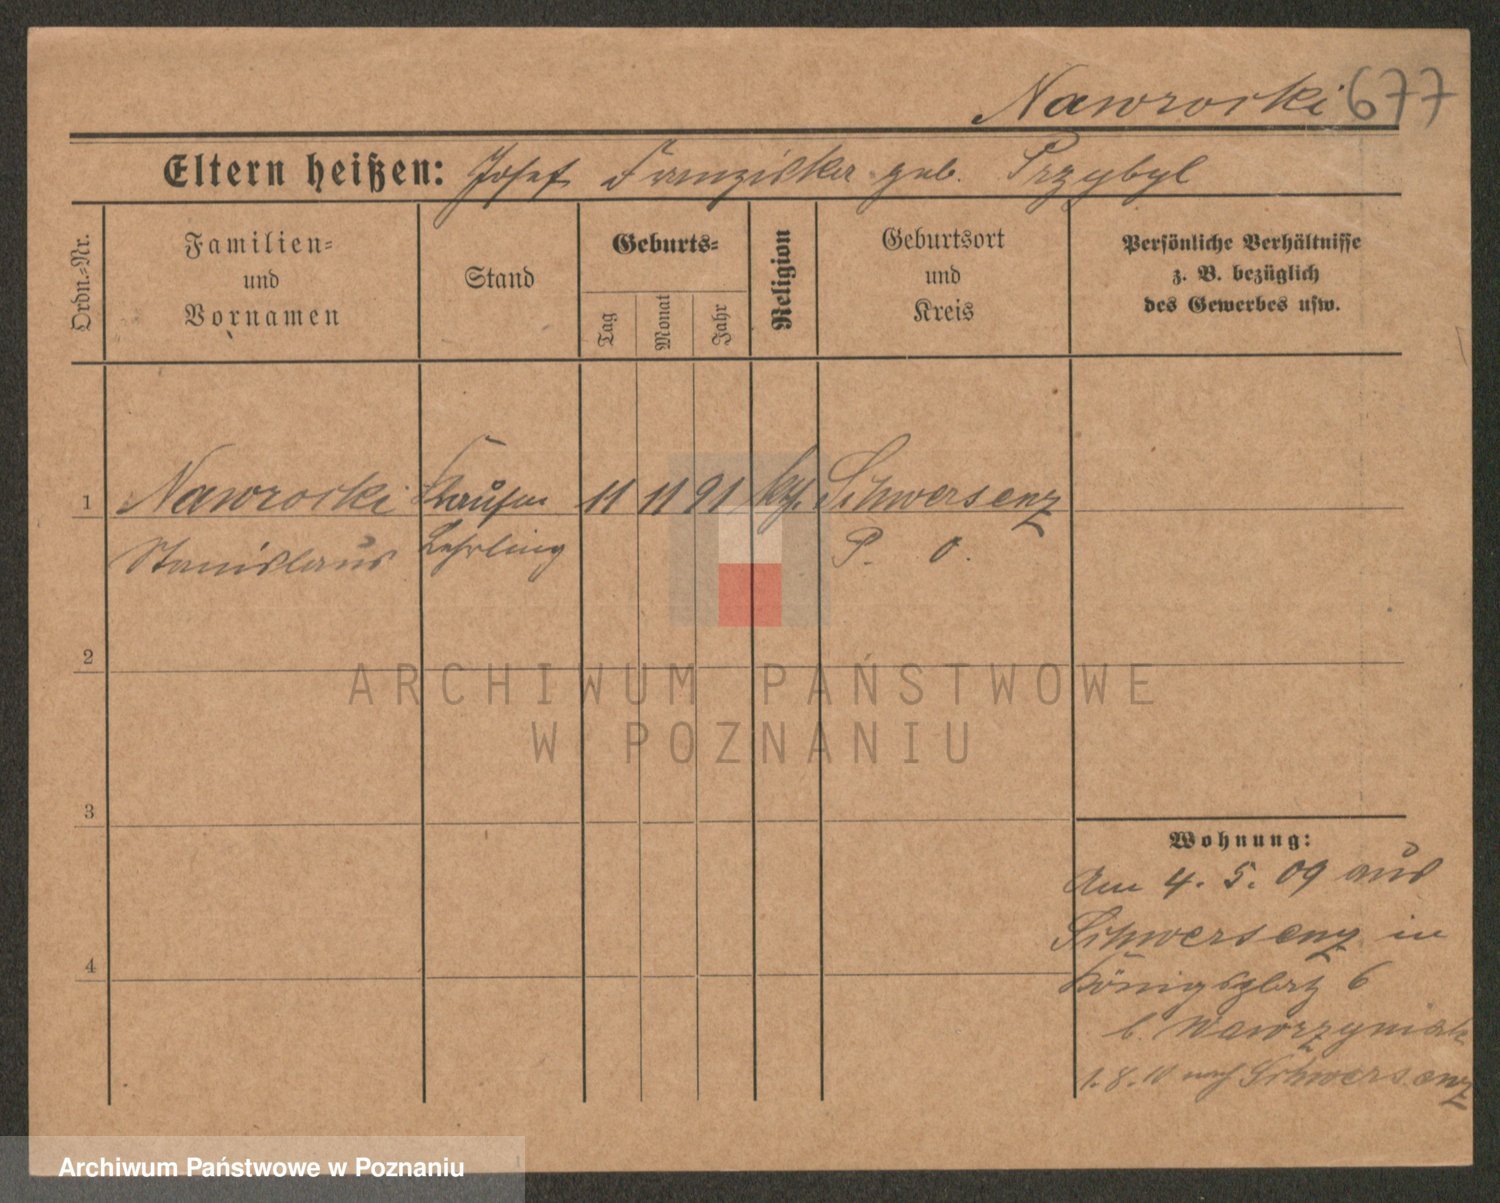 Nawrocki 677
Eltern heißen: Josef Franziska geb. Przybyl
Ordn.-Nr.
Familien-
und
Vornamen
Stand
Geburts-
Tag
Monat
Jahr
Religion
Geburtsort
und
Kreis
Persönliche Verhältnisse
z. B. bezüglich
des Gewerbes usw.
1 Nawrocki Kaufm 11 11 91 kth. Schwersenz
Stanislaus Lehrling P. O.
2
3
4
Wohnung:
Am 4. 5. 09 aus
Schwersenz in
Königsplatz 6
b. Wawrzyniak
1.8.10 nach Schwersenz
ARCHIWUM PAŃSTWOWE
W POZNANIU
Archiwum Państwowe w Poznaniu